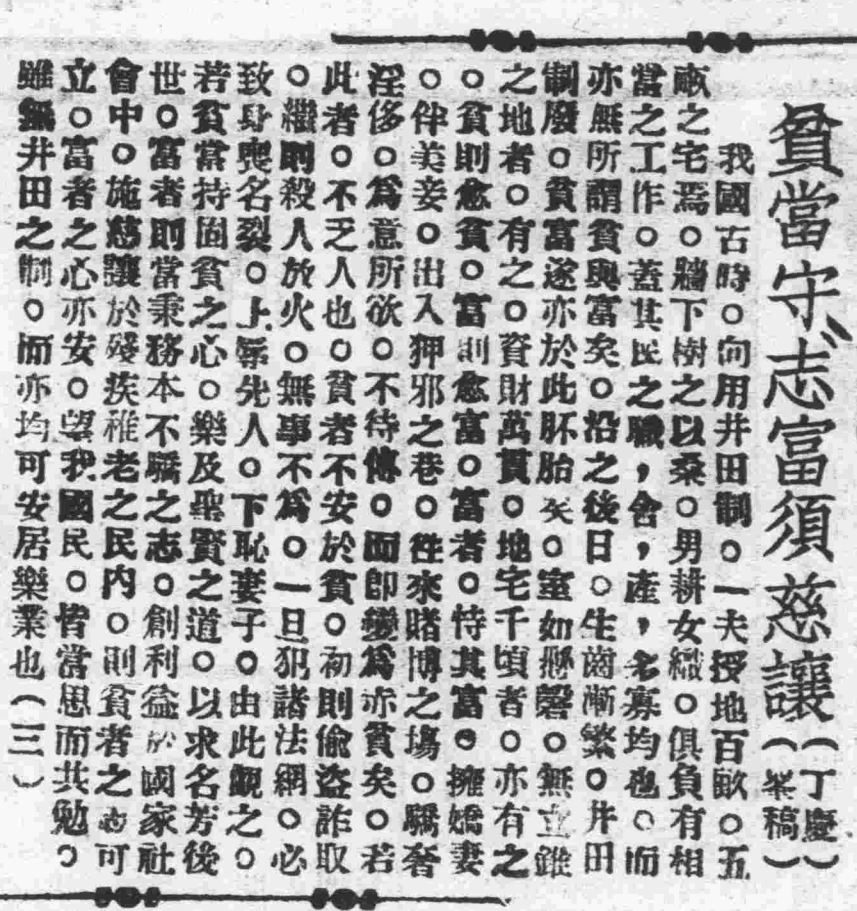 貧當守志富須慈讓(丁慶棻稿)
我國古時。向用井田制。一夫授地百畝。五
畝之宅焉。牆下樹之以桑。男耕女織。俱負有相
當之工作。蓋其民之職,舍,產,多寡均也。而
亦無所謂貧與富矣。沿之後日。生齒漸繁。井田
制廢。貧富遂亦於此胚胎矣。室如懸磬。無立錐
之地者。有之。資財萬貫。地宅千頃者。亦有之
。貧則愈貧。富則愈富。富者。恃其富。擁嬌妻
。伴美妾。出入狎邪之巷。往來賭博之塲。驕奢
淫侈。爲意所欲。不待傳。而即變爲赤貧矣。若
此者。不乏人也。貧者不安於貧。初則偷盜詐取
。繼則殺人放火。無事不爲。一旦犯諸法網。必
致身喪名裂。上辱先人。下恥妻子。由此觀之。
若貧當持固貧之心。樂及聖賢之道。以求名芳後
世。富者則當秉務本不驕之志。創利益於國家社
會中。施慈讓於殘疾稚老之民內。則貧者之志可
立。富者之心亦安。望我國民。皆當思而共勉。
雖無井田之制。而亦均可安居樂業也(三)